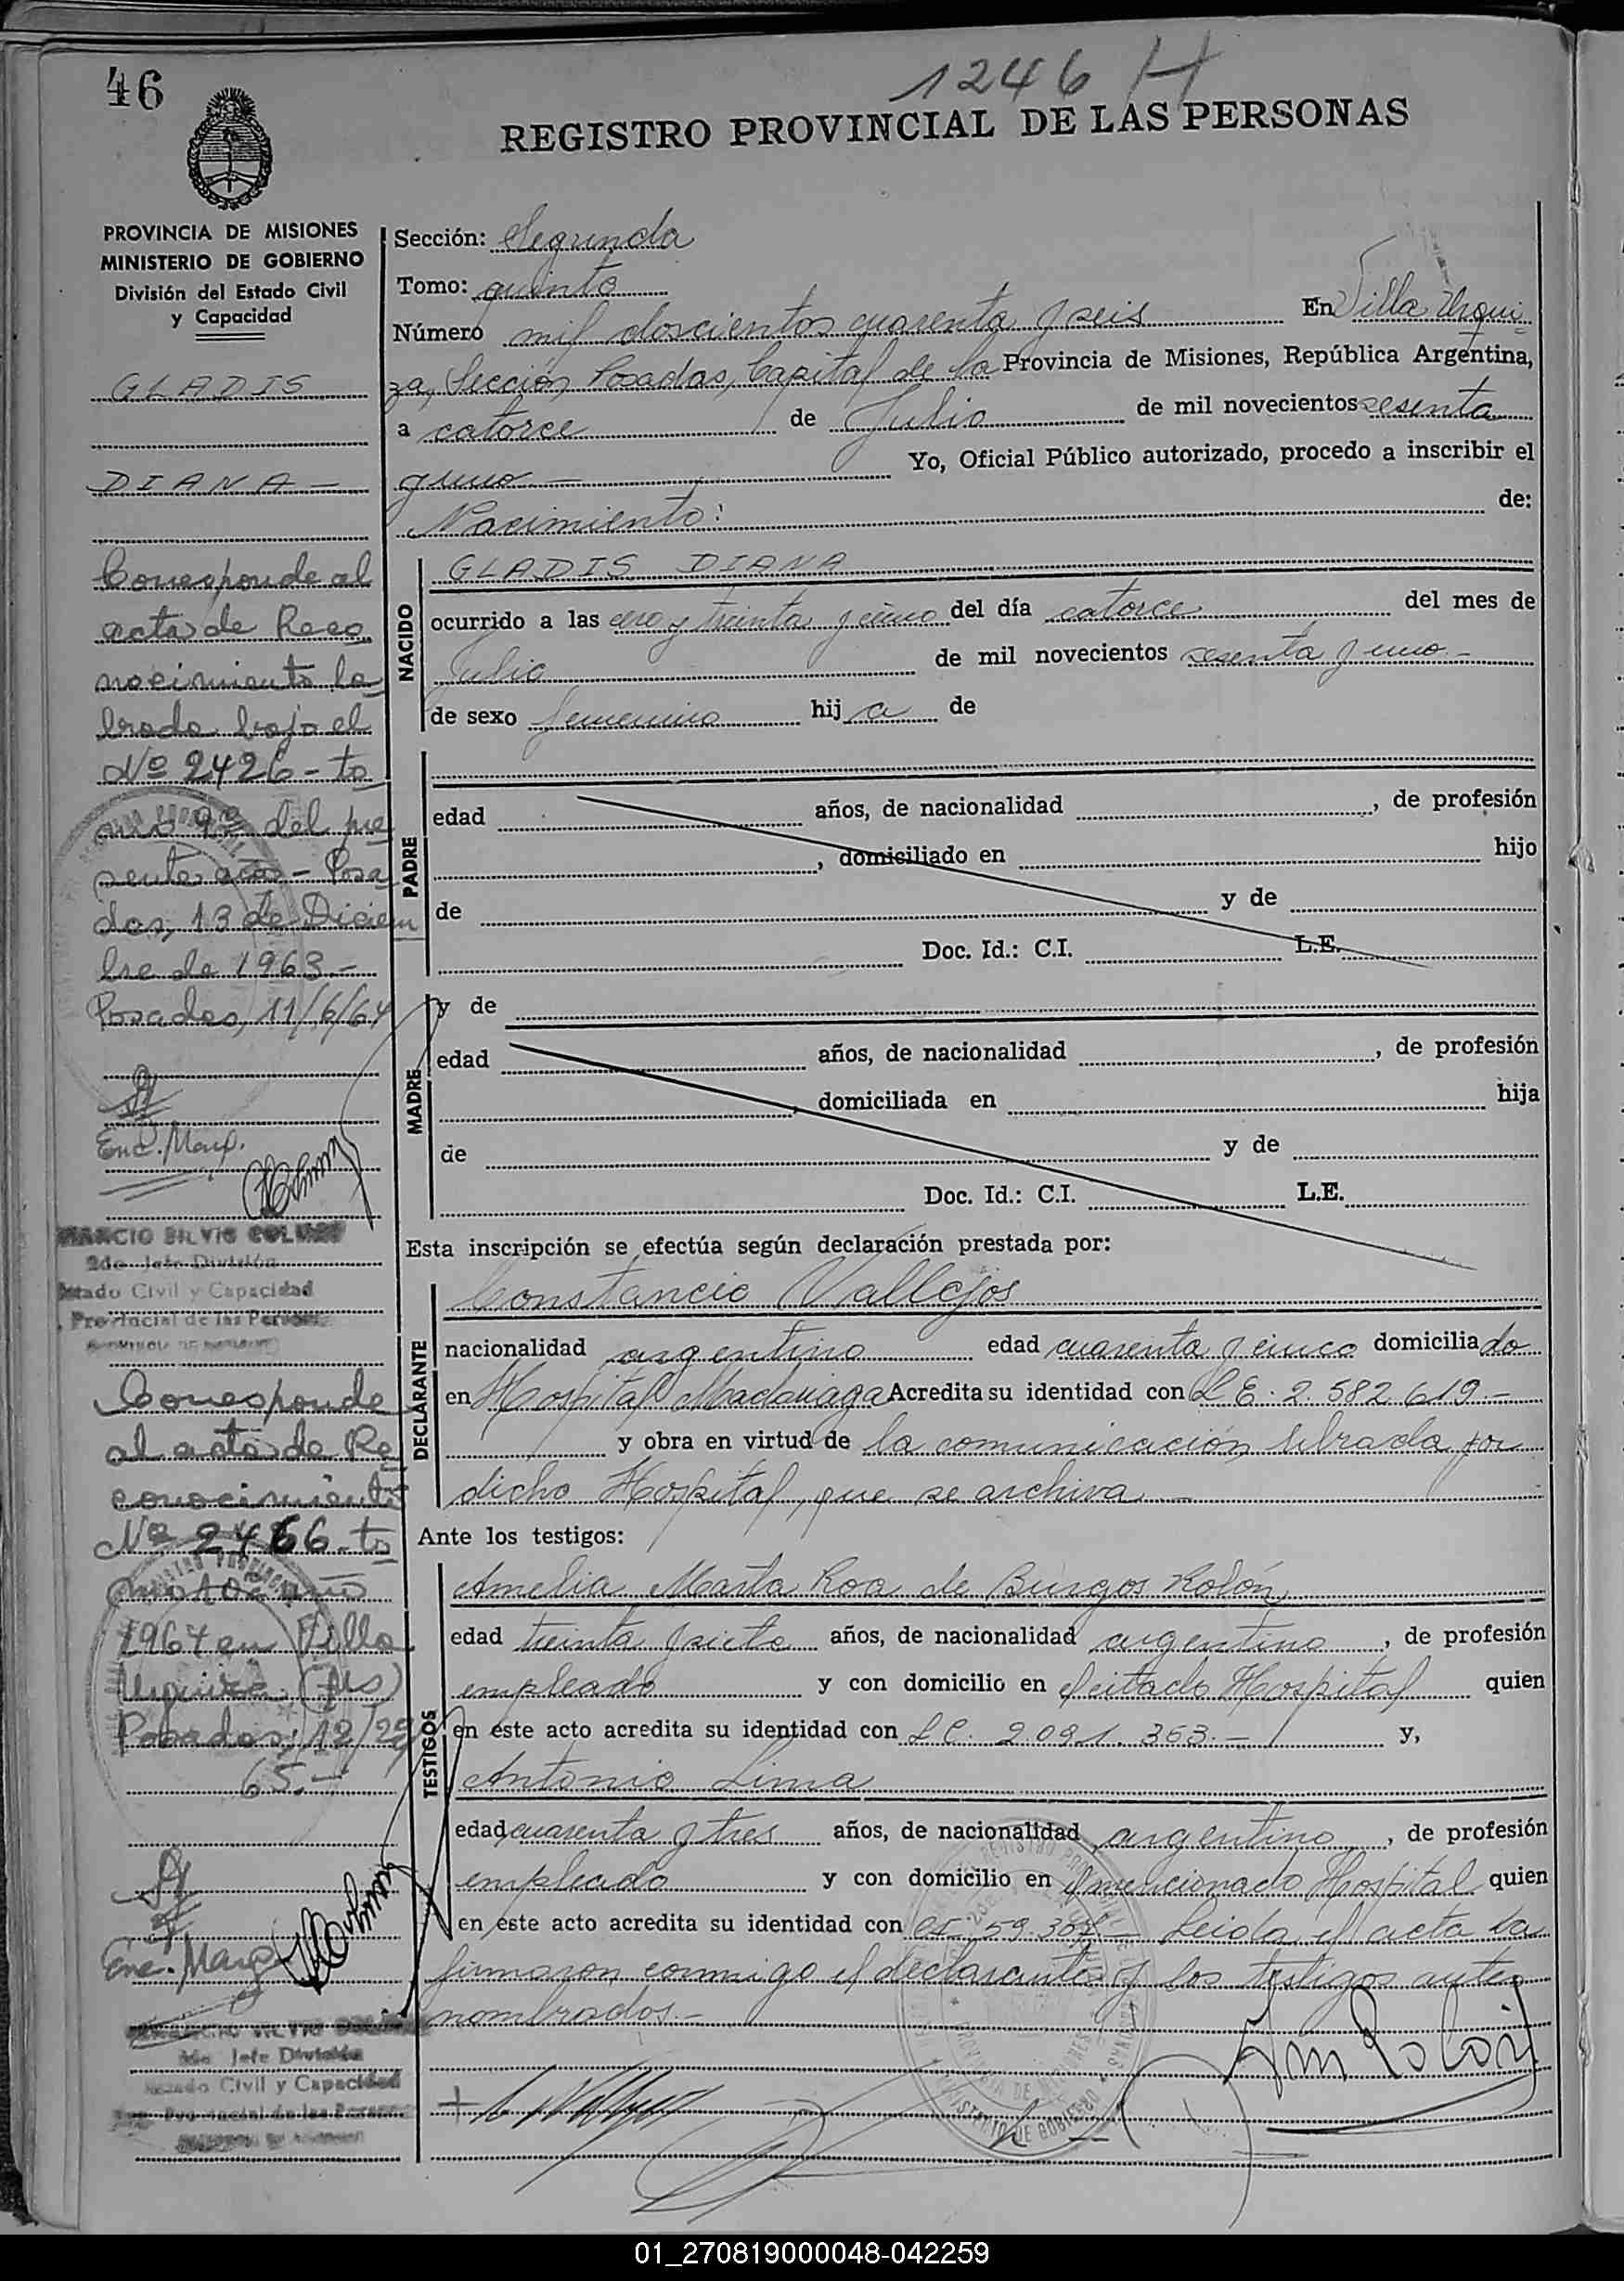 46
1246 H
REGISTRO PROVINCIAL DE LAS PERSONAS
PROVINCIA DE MISIONES
MINISTERIO DE GOBIERNO
División del Estado Civil
y Capacidad
GLADIS
DIANA -
Corresponde al
acta de Reco
nocimiento la
brada bajo el
Nº 2426 - to
mo 9º del pre
sente año - Posa
das, 13 de Diciem
bre de 1963.-
Posadas, 11/6/64
Enc. Marg.
2do. Jefe División
Estado Civil y Capacidad
Provincial de las Person
Corresponde
al acta de Re
conocimiento
Nº 2466 - to
mo 10º año
1964 en Villa
Urquiza (Ms)
Posadas, 12/29/
65.-
Enc. Marg.
2do. Jefe División
Estado Civil y Capacidad
Sección: Segunda
Tomo: quinto
Número mil doscientos cuarenta y seis En Villa Urqui-
za, Sección Posadas, Capital de la Provincia de Misiones, República Argentina,
a catorce de Julio de mil novecientos sesenta
y uno.- Yo, Oficial Público autorizado, procedo a inscribir el
Nacimiento: de:
NACIDO
GLADIS DIANA
ocurrido a las cero y treinta y cinco del día catorce del mes de
Julio de mil novecientos sesenta y uno.-
de sexo femenino hija de
PADRE
edad años, de nacionalidad , de profesión
, domiciliado en hijo
de y de
Doc. Id.: C.I. L.E.
MADRE
y de
edad años, de nacionalidad , de profesión
, domiciliada en hija
de y de
Doc. Id.: C.I. L.E.
Esta inscripción se efectúa según declaración prestada por:
DECLARANTE
Constancio Vallejos
nacionalidad argentino edad cuarenta y cinco domiciliado
en Hospital Madariaga Acredita su identidad con L E. 2.582.619.-
y obra en virtud de la comunicación librada por
dicho Hospital, que se archiva
Ante los testigos:
TESTIGOS
Amelia Marta Roa de Burgos Rolón
edad treinta y siete años, de nacionalidad argentina , de profesión
empleada y con domicilio en el citado Hospital quien
en este acto acredita su identidad con L C. 2.091.363.- y,
Antonio Lima
edad cuarenta y tres años, de nacionalidad argentino , de profesión
empleado y con domicilio en el mencionado Hospital quien
en este acto acredita su identidad con CI 59.307 - Leida el acta la
firmaron conmigo el declarante y los testigos antes
nombrados.-
01_270819000048-042259